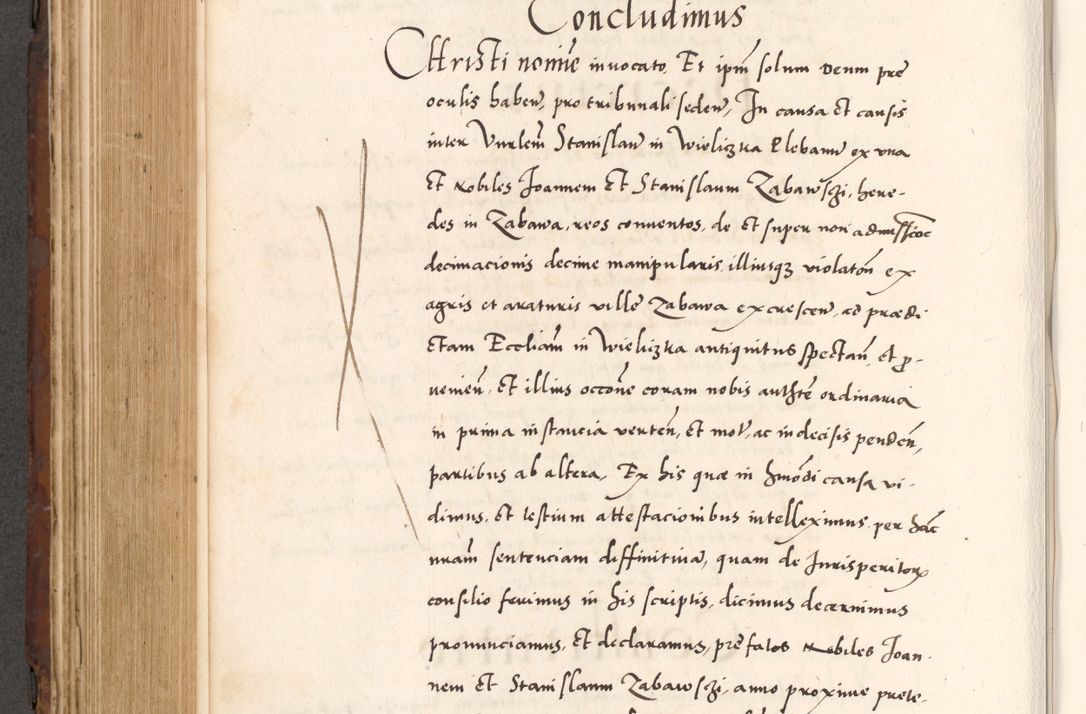 Concludimus
Christi nomine invocato, Et ipm̃ solum Deum pre
oculis haben̄, pro tribunali seden̄, In causa et causis
inter Vnrlem̃ Stanislaū in Wieliczka Plebanū ex vna
et Nobiles Joannem et Stanislaum Zabawski, here-
des in Zabawa, reos conuentos, de et super non admissioē
decimacionis decime manipularis, illiusqȝ violatōn ex
agris et araturis ville Zabawa excrescen̄, ad prædi-
ctam Eccliam̃ in Wieliczka antiquitus spectan̄, et p̱-
uenien̄, et illius occōne coram nobis authte ordinaria
in prima instancia verten̄, et mot̄, ac indecisis penden̄,
partibus ab altera, Ex his quæ in hmōdi causa vi-
dimus, et testium attestacionibus intelleximus, per hāc
nram̃ sentenciam diffinitiuā, quam de Jurisperitorȝ
consilio ferimus in his scriptis, dicimus decernimus
pronunciamus, et declaramus, prefatos Nobiles Joan-
nem et Stanislaum Zabawski, anno proxime prete-